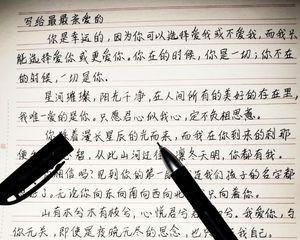 写给最最亲爱的
你是幸运的，因为你可以选择爱我或不爱我，而我只
能选择爱你或更爱你。你在的时候，你是一切；你不在
的时候，一切是你。
星河璀璨，阳光干净，在人间所有的美好的存在里，
我唯一爱的是你。只愿君心似我心，定不负相思意。
你 着漫长星辰的光而来，而我在你到来的刹那
便 ，从此山河过 凛冬天明，你都有我。
信 吗？见到你的第一 连我们孩子的名字都
了。无论你向东向南向西向北 只向着你。
山有木兮木有枝兮，心悦君兮君 兮。我爱你，与
你无关，即使是夜晚无尽的思念，也只 我自己。